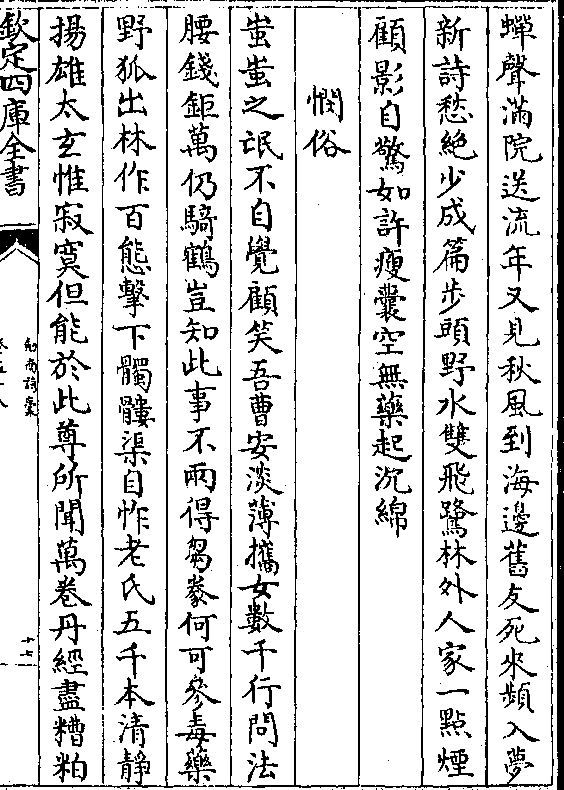 蟬聲滿院送流年又見秋風到海邊舊友死來頻入夢
新詩愁絶少成篇步頭野水雙飛鷺林外人家一點煙
顧影自驚如許瘦囊空無藥起沉綿
憫俗
蚩蚩之氓不自覺顧笑吾曹安淡薄攜女數千行問法
腰錢鉅萬仍騎鶴豈知此事不兩得芻豢何可參毒藥
野狐出林作百態擊下髑髏渠自怍老氏五千本清靜
揚雄太玄惟寂寞但能於此尊所聞萬卷丹經盡糟粕
欽定四庫全書
劒南詩槀
卷五十八
十七